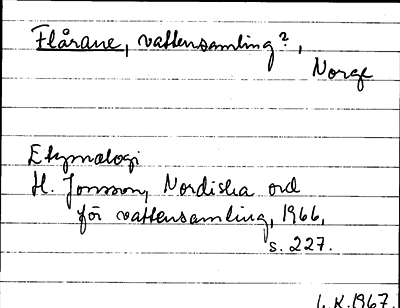 Flårane, vattensamling?,
Norge
Etymologi
H. Jonsson, Nordiska ord
för vattensamling, 1966,
s. 227.
I. K. 1967.